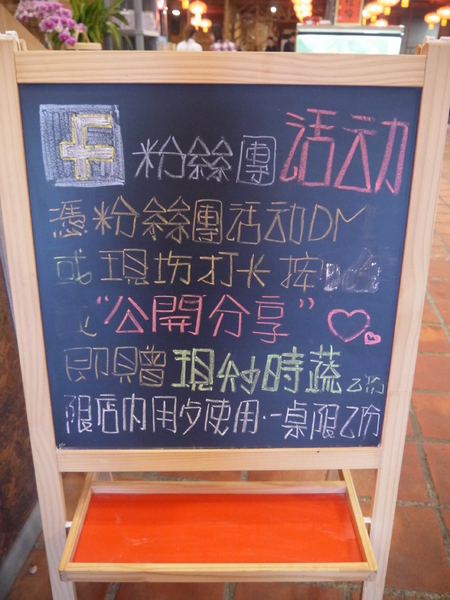 F 粉絲團 活动
憑粉絲團活动DM
或現场打卡按
"公開分享"
即贈現炒時蔬乙份
限店内用歺使用.一桌限乙份